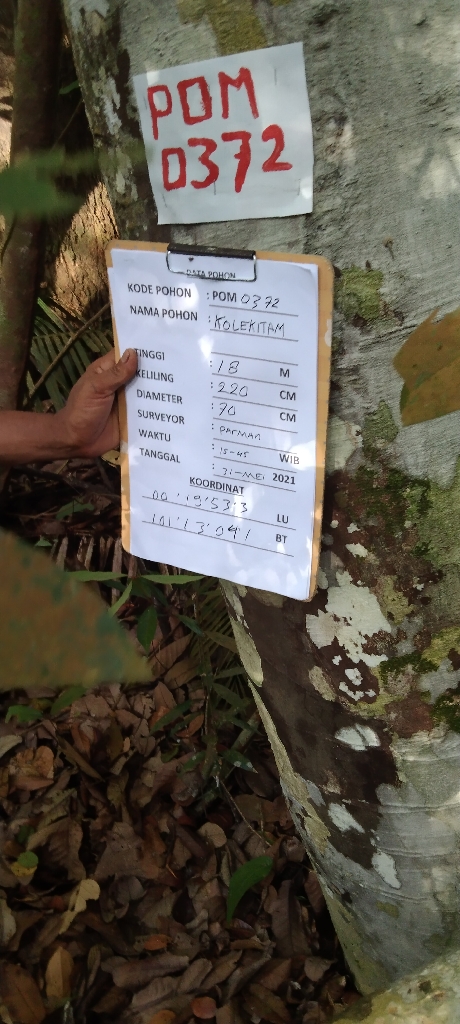 POM
0372
DATA POHON
KODE POHON : POM 0372
NAMA POHON : KOLEKITAM
TINGGI : 18 M
KELILING : 220 CM
DIAMETER : 70 CM
SURVEYOR : PARMAN
WAKTU : 15-45 WIB
TANGGAL : 31-MEI 2021
KOORDINAT
00°19'53.3 LU
101°13'04.1 BT